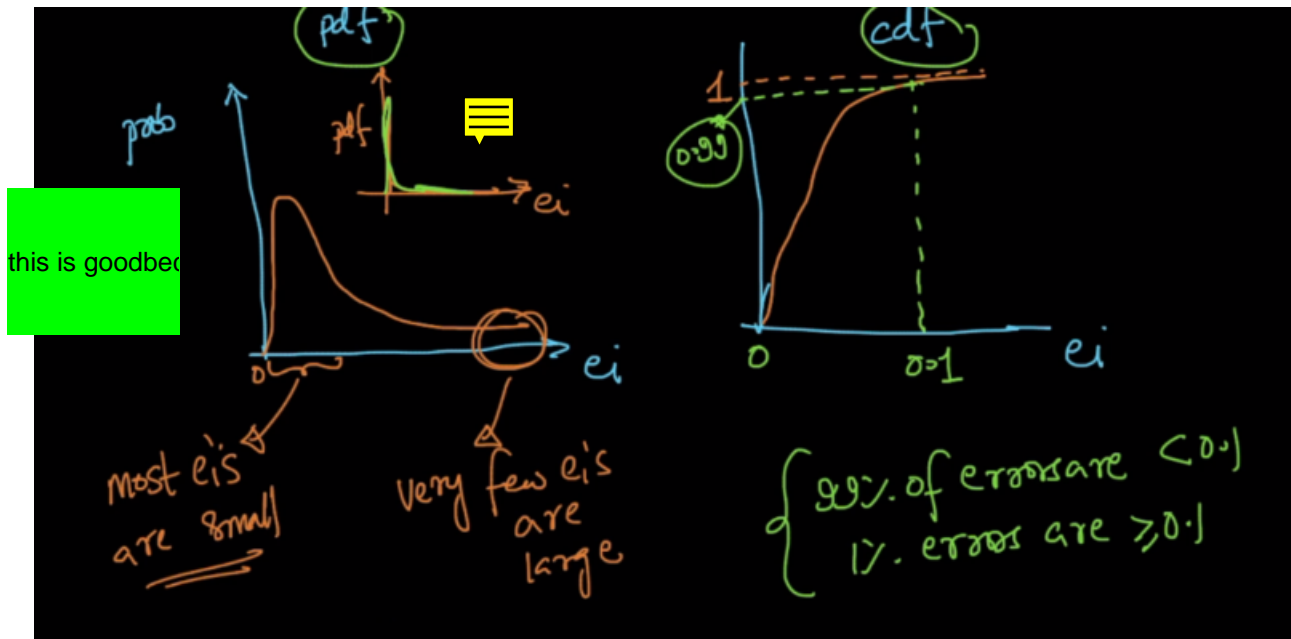 pdf
prob
pdf
ei
this is goodbec
0
ei
most ei's
are small
very few ei's
are
large
cdf
1
0.99
0
0.1
ei
99%. of errors are < 0.1
1%. errors are ≥ 0.1